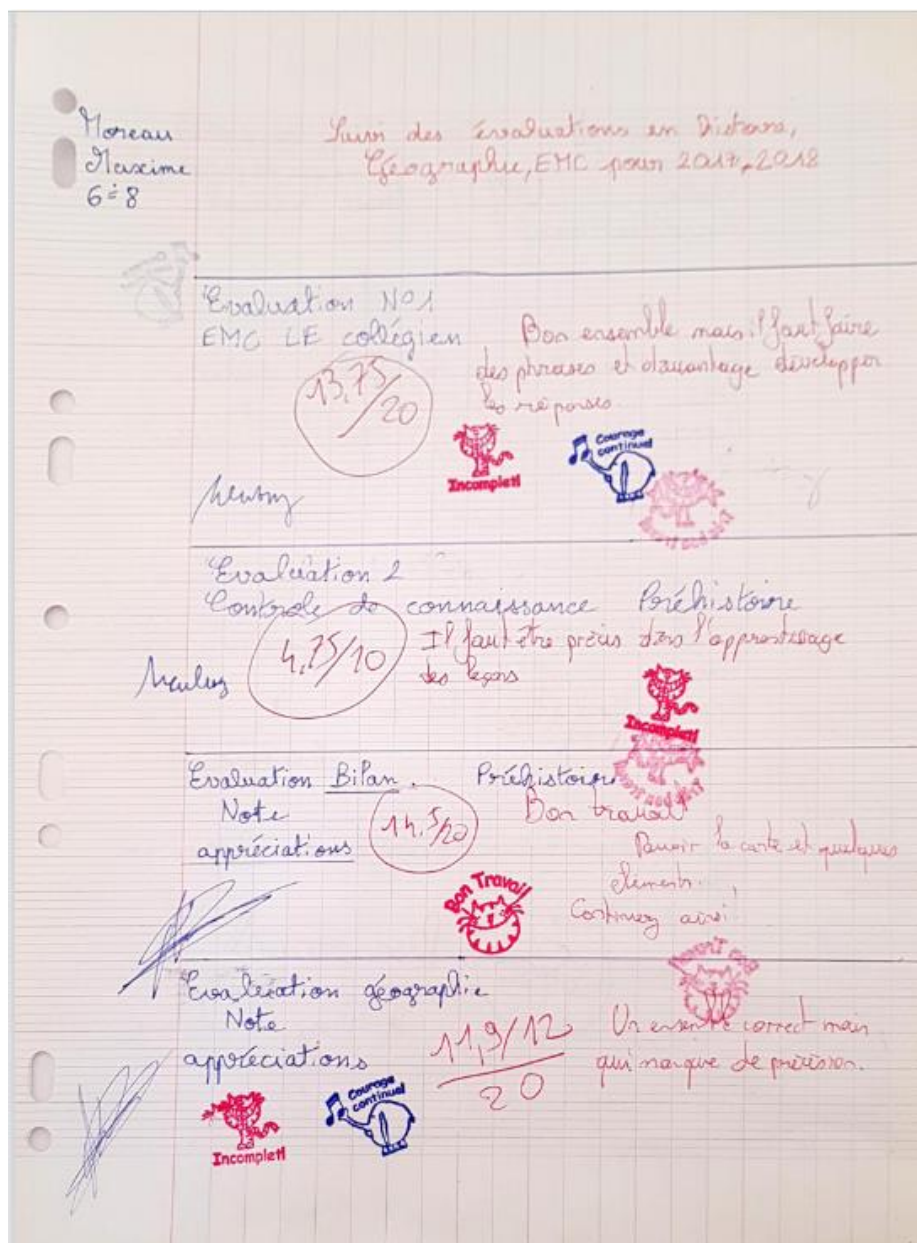 Moreau
Maxime
6è8
Suivi des évaluations en Histoire,
Géographie, EMC pour 2017, 2018
Evaluation N°1
EMC LE collégien
Bon ensemble mais il faut faire
des phrases et davantage développer
les réponses.
13,75/20
Incomplet!
Courage
continue!
Evaluation 2
Controle de connaissance Préhistoire
4,75/10
Il faut être précis dans l'apprentissage
des leçons
Incomplet!
Evaluation Bilan. Préhistoire
Note
appréciations
14,5/20
Bon travail
la carte et quelques
éléments.
Continuez ainsi!
Bon Travail
Evaluation géographie
Note
appréciations
11,9/12
20
Un ensemble correct mais
qui manque de précision.
Incomplet!
Courage
continue!